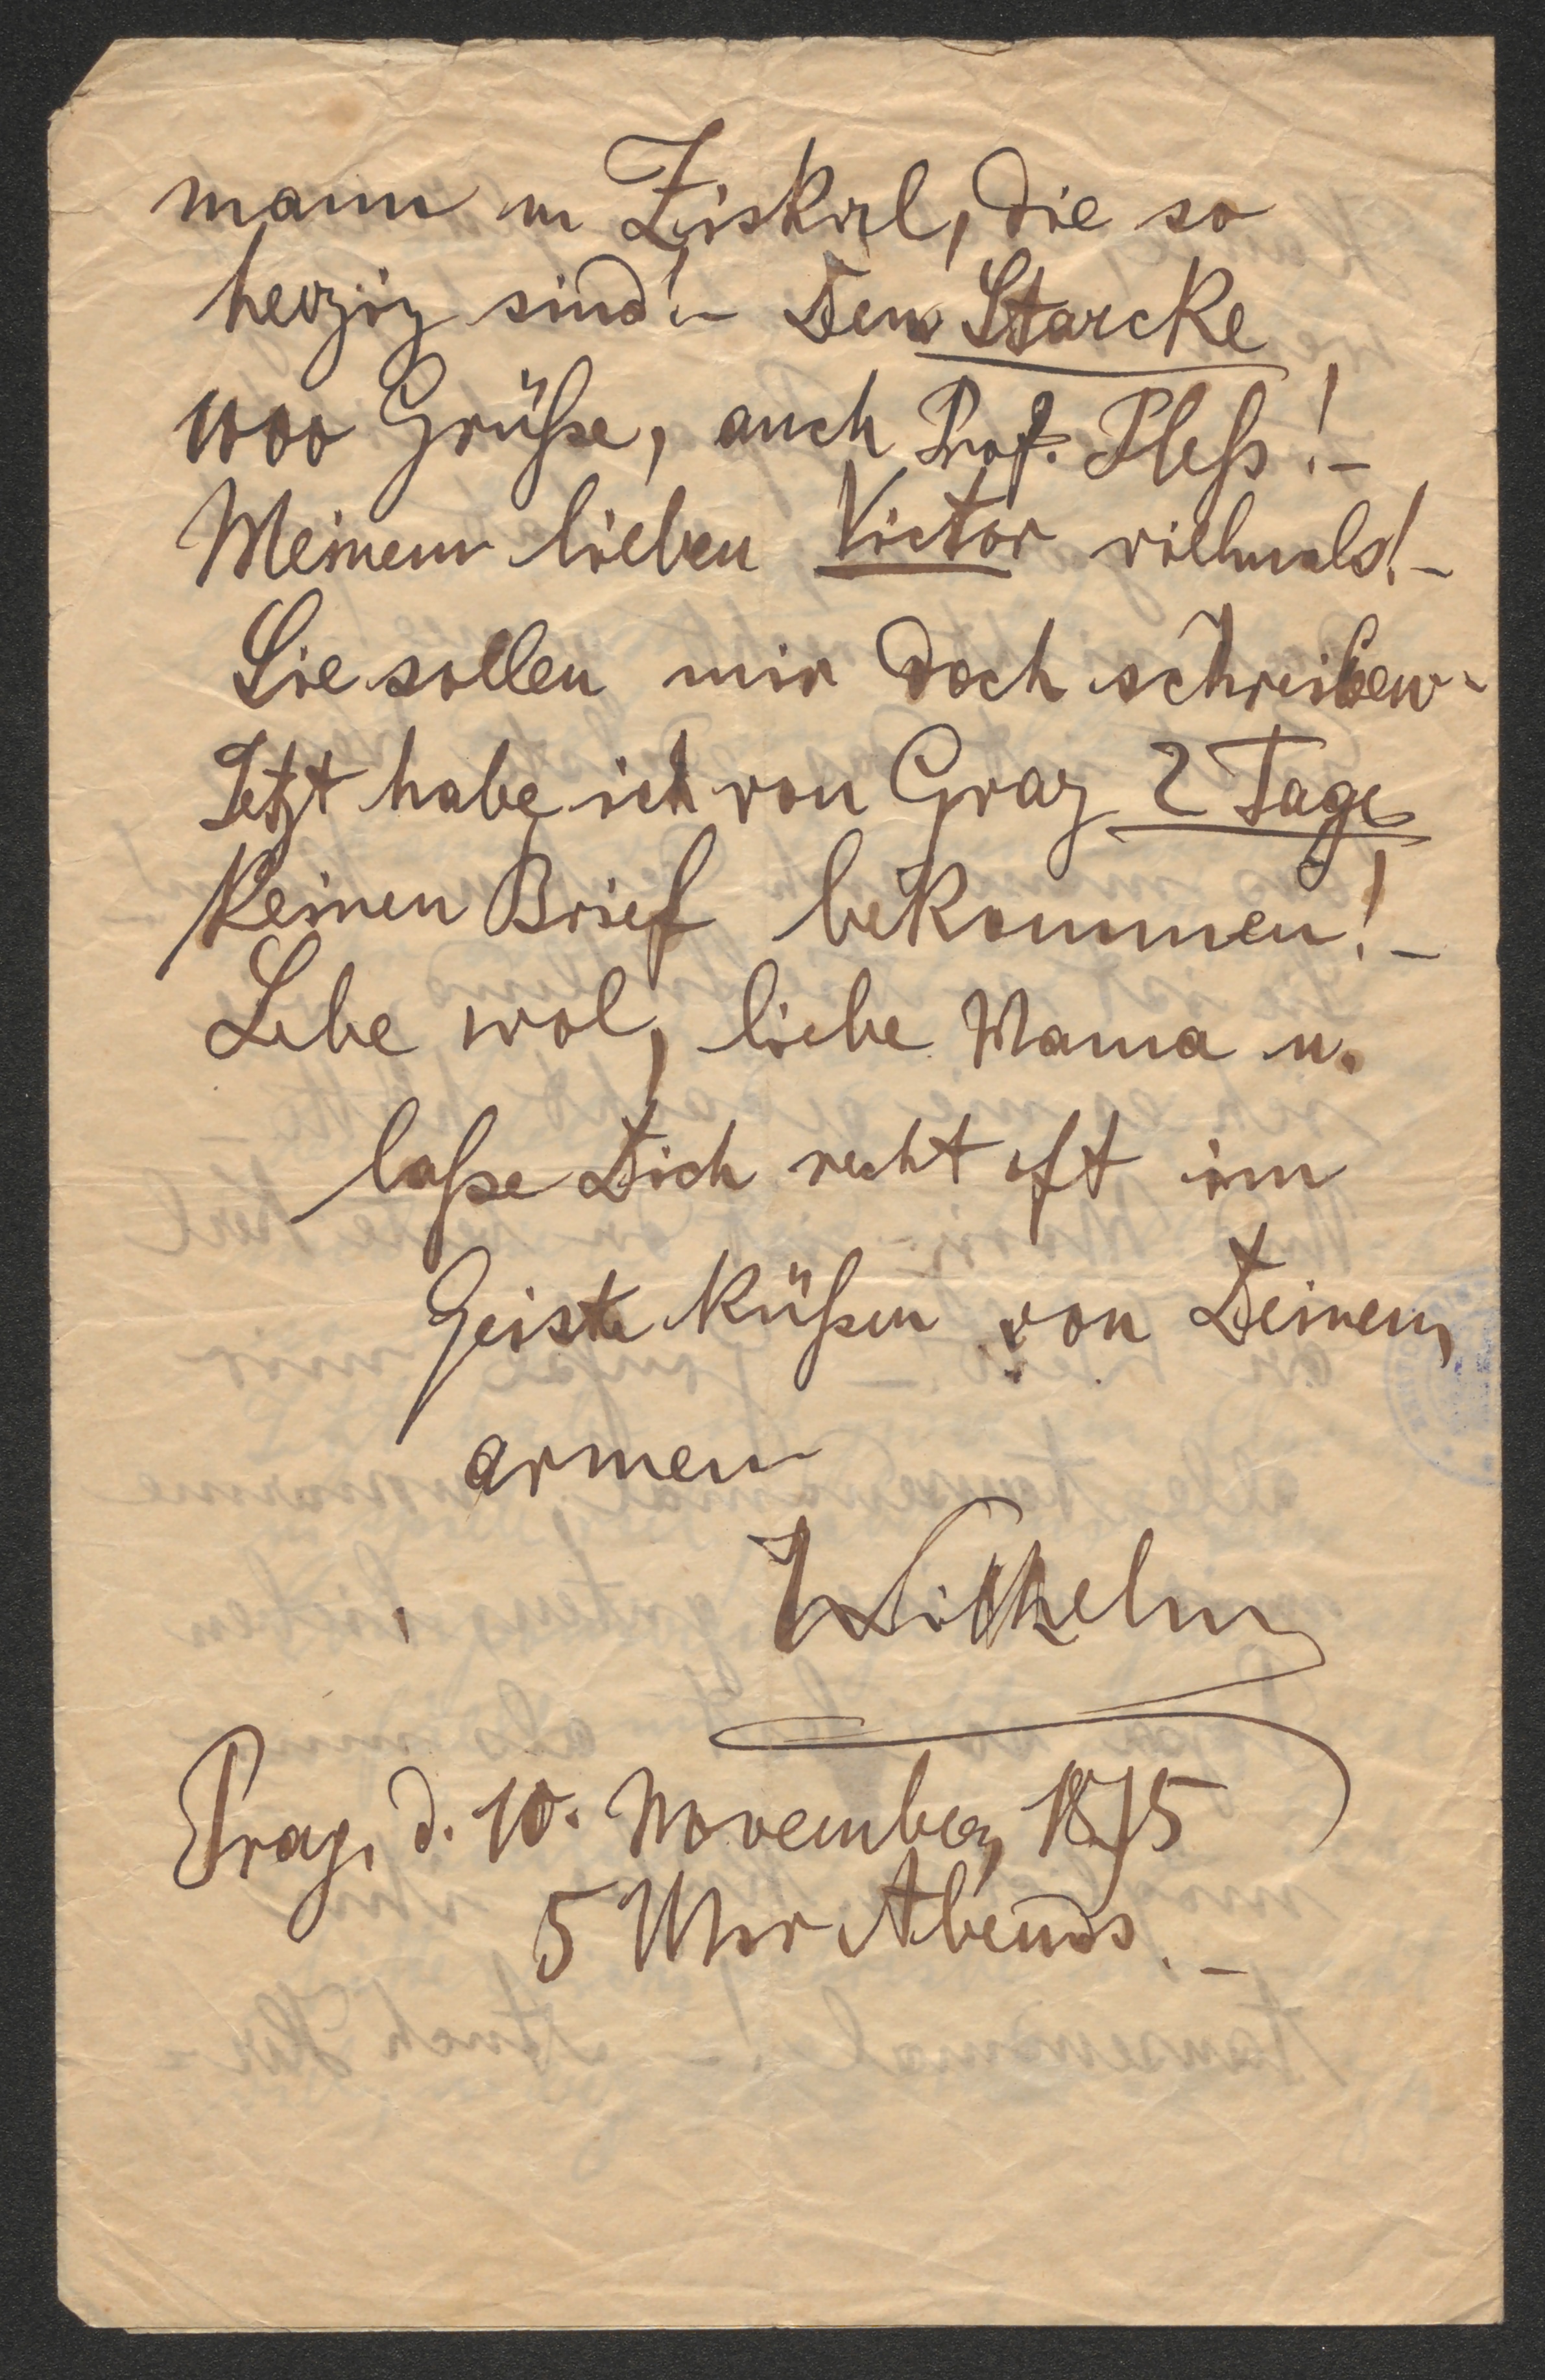 mann u Ziskal, die so
herzig sind! – Dem Starcke
1000 Grüße, auch Prof. Pleß! –
Meinem lieben Victor vielmals! –
Sie sollen mir doch schreiben –
Jetzt habe ich von Graz 2 Tage
keinen Brief bekommen! –
Lebe wol, liebe Mama u.
laße Dich recht oft im
Geiste küßen von Deinem
armen
Wilhelm
Prag, d. 10. November, 1875
5 Uhr Abends. –